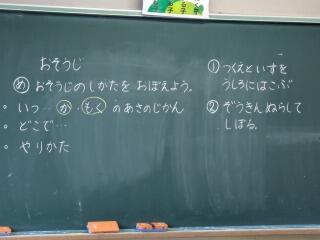 おそうじ
め おそうじのしかたを おぼえよう。
。いつ… か・もく のあさのじかん
。どこで…
。やりかた
① つくえといすを
うしろにはこぶ
② ぞうきんぬらして
しぼる。